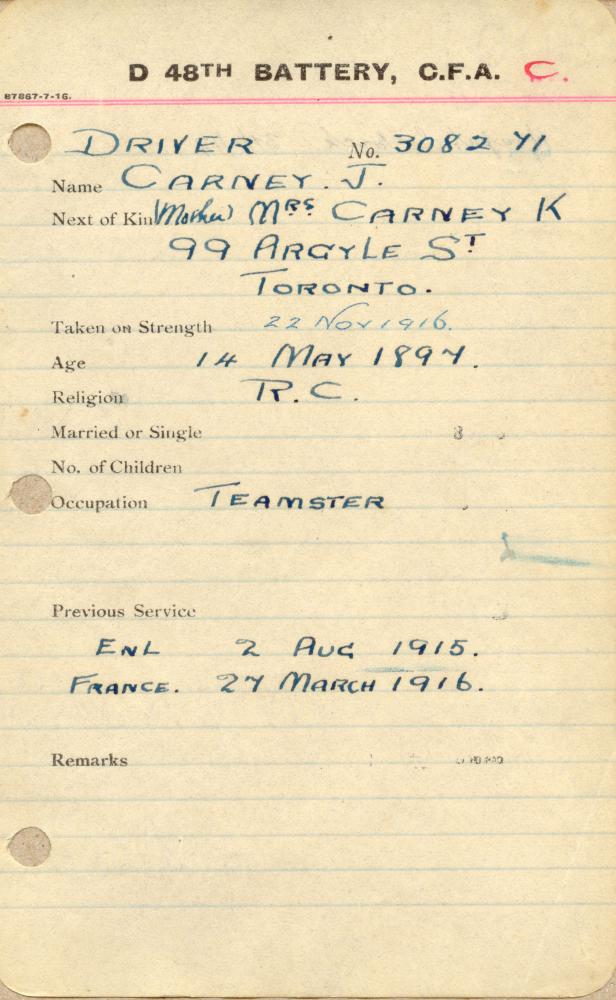 D 48TH BATTERY, C.F.A. C.
87867-7-16.
DRIVER No. 308271
Name CARNEY. J.
Next of Kin (Mother) MRS CARNEY K
99 ARGYLE ST
TORONTO.
Taken on Strength 22 Nov 1916.
Age 14 MAY 1897.
Religion R.C.
Married or Single
No. of Children
Occupation TEAMSTER
Previous Service
ENL 2 AUG 1915.
FRANCE. 27 MARCH 1916.
Remarks